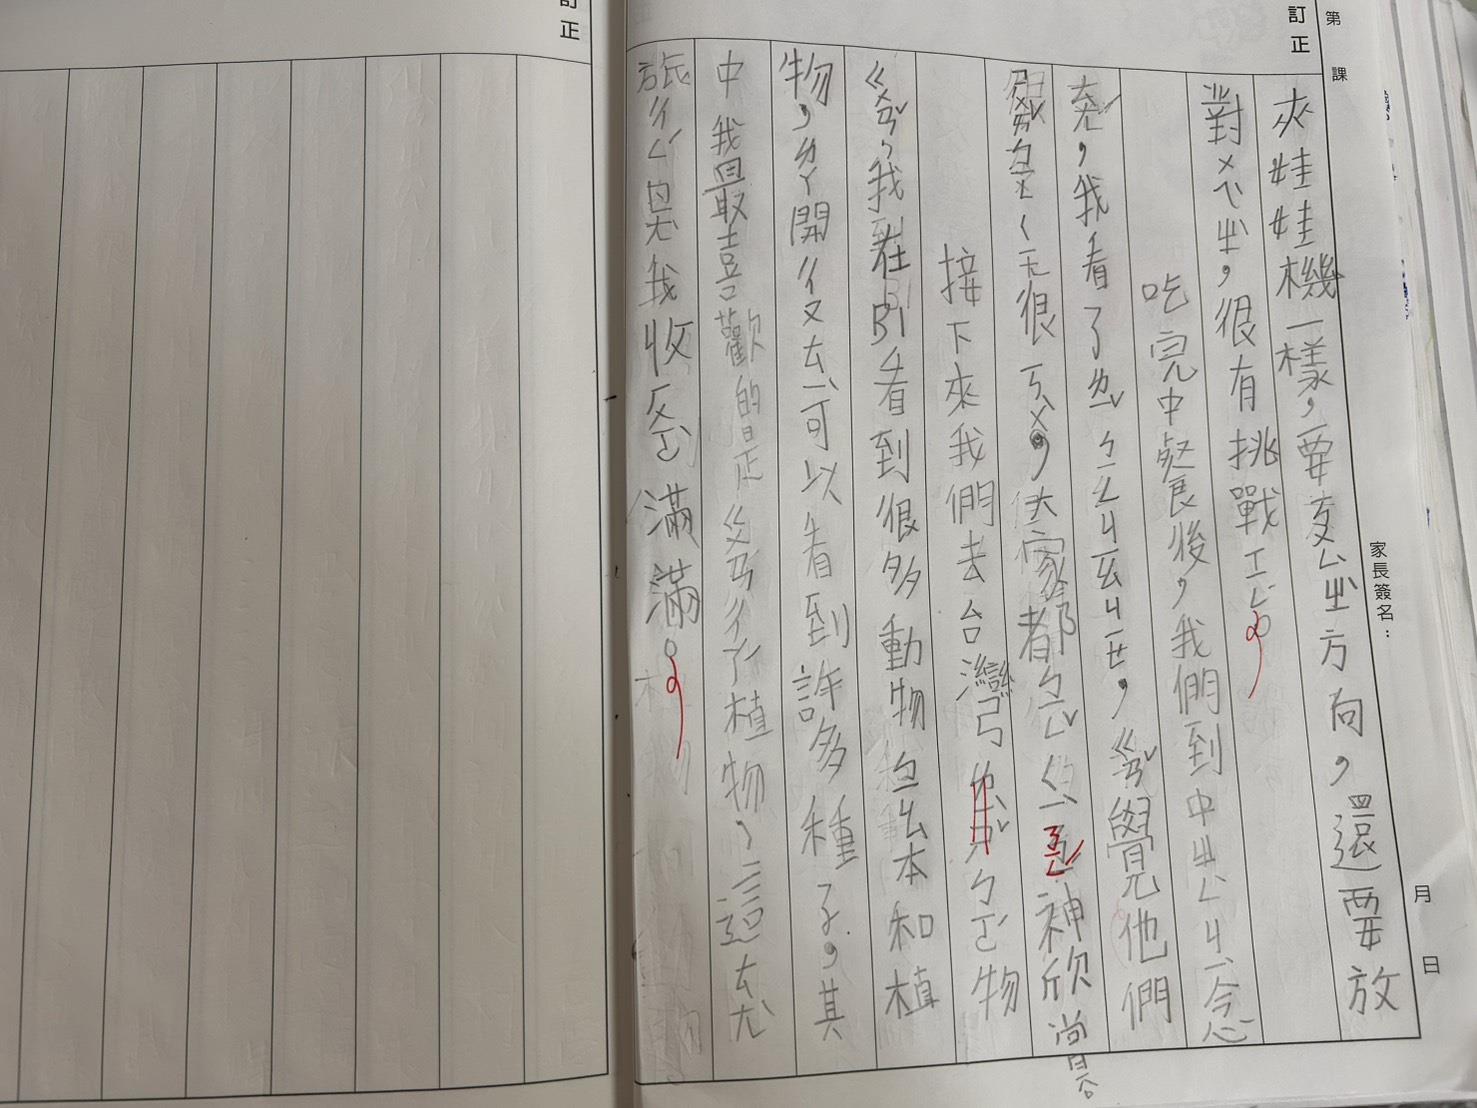 第 課
月 日
家長簽名：
訂正
夾娃娃機一樣，要ㄓ方向，還要放
對ㄨㄟˋㄓˋ，很有挑戰ㄒㄧㄥˋ。
吃完中餐後，我們到中ㄓㄥˋㄐㄧˋ念
ㄊㄤˊ，我看了ㄌㄧˇㄅㄧㄥㄐㄧㄠㄐㄧㄝ，ㄍㄢˇ覺他們
很ㄎㄨˋ，大家都神欣賞
接下來我們去台灣ㄅㄛˊ物
ㄍㄨㄢˇ，我在B1看到很多動物ㄅㄧㄠ本和植
物，ㄌㄚ開ㄔㄡ ㄊㄧˋ可以看到許多種子，其
中我最喜歡的是ㄍㄨㄢ ㄔㄤˊ植物，這ㄊㄤ
旅ㄔㄥˊ是我收ㄏㄨㄛˋ滿滿。
訂正